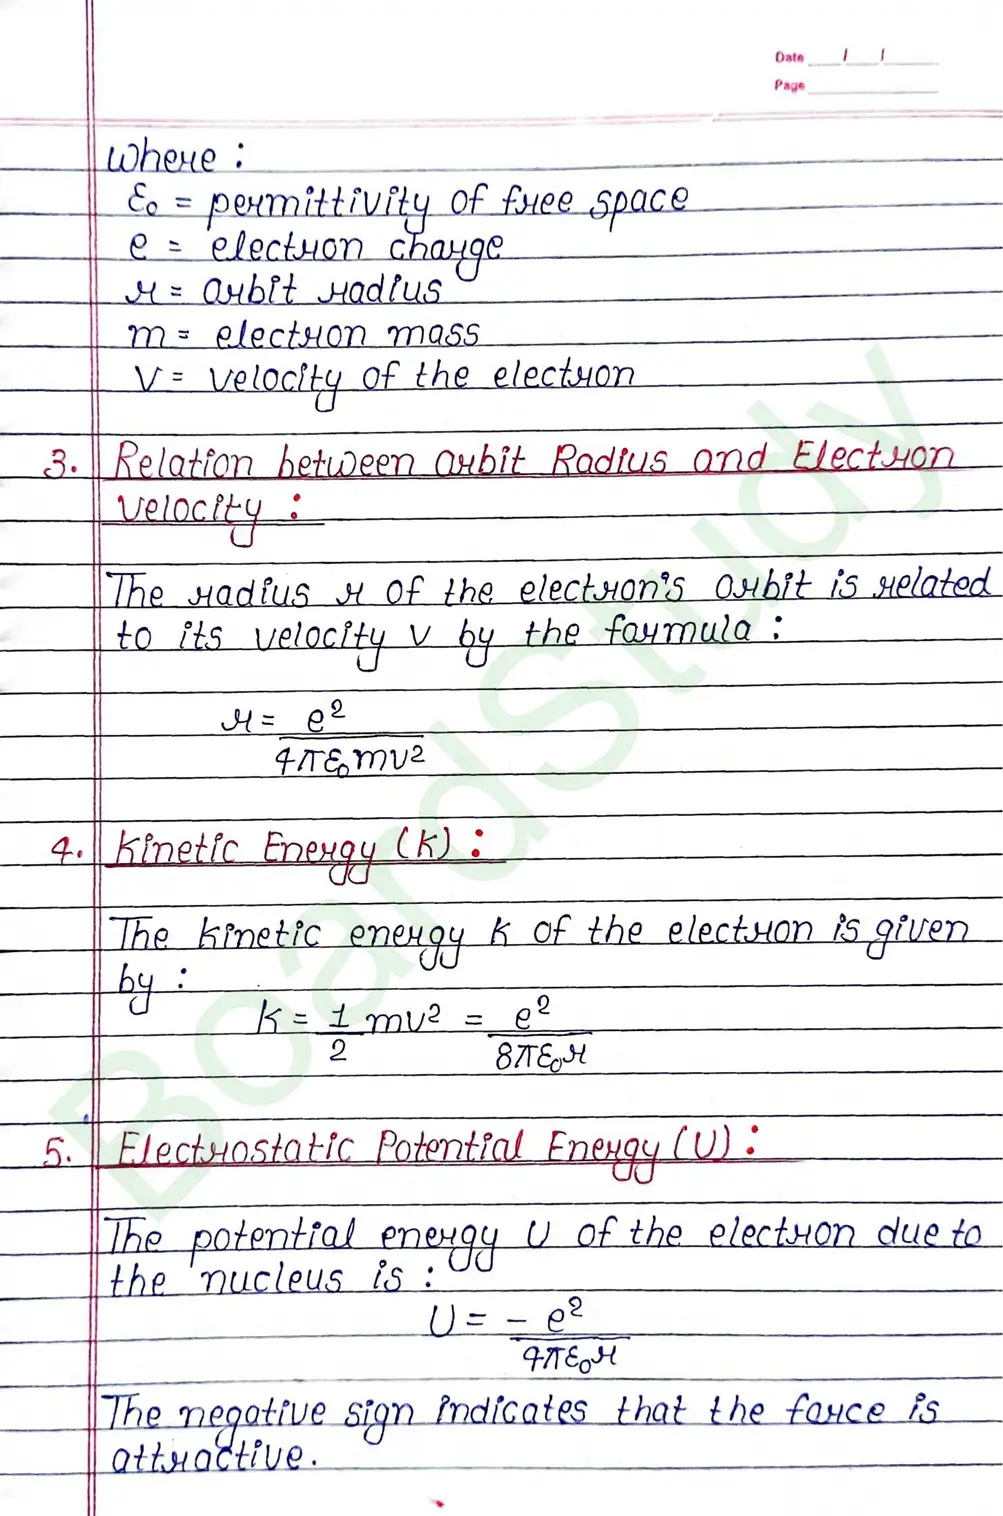 Date ___/___/___
Page
where :
ε₀ = permittivity of free space
e = electron charge
r = orbit radius
m = electron mass
v = velocity of the electron
3. Relation between orbit Radius and Electron
velocity :
The radius r of the electron's orbit is related
to its velocity v by the formula :
r = e²
4πε₀mv²
4. Kinetic Energy (K) :
The kinetic energy K of the electron is given
by :
K = 1/2 mv² = e²
8πε₀r
5. Electrostatic Potential Energy (U) :
The potential energy U of the electron due to
the nucleus is :
U = - e²
4πε₀r
The negative sign indicates that the force is
attractive.
BoardStudy